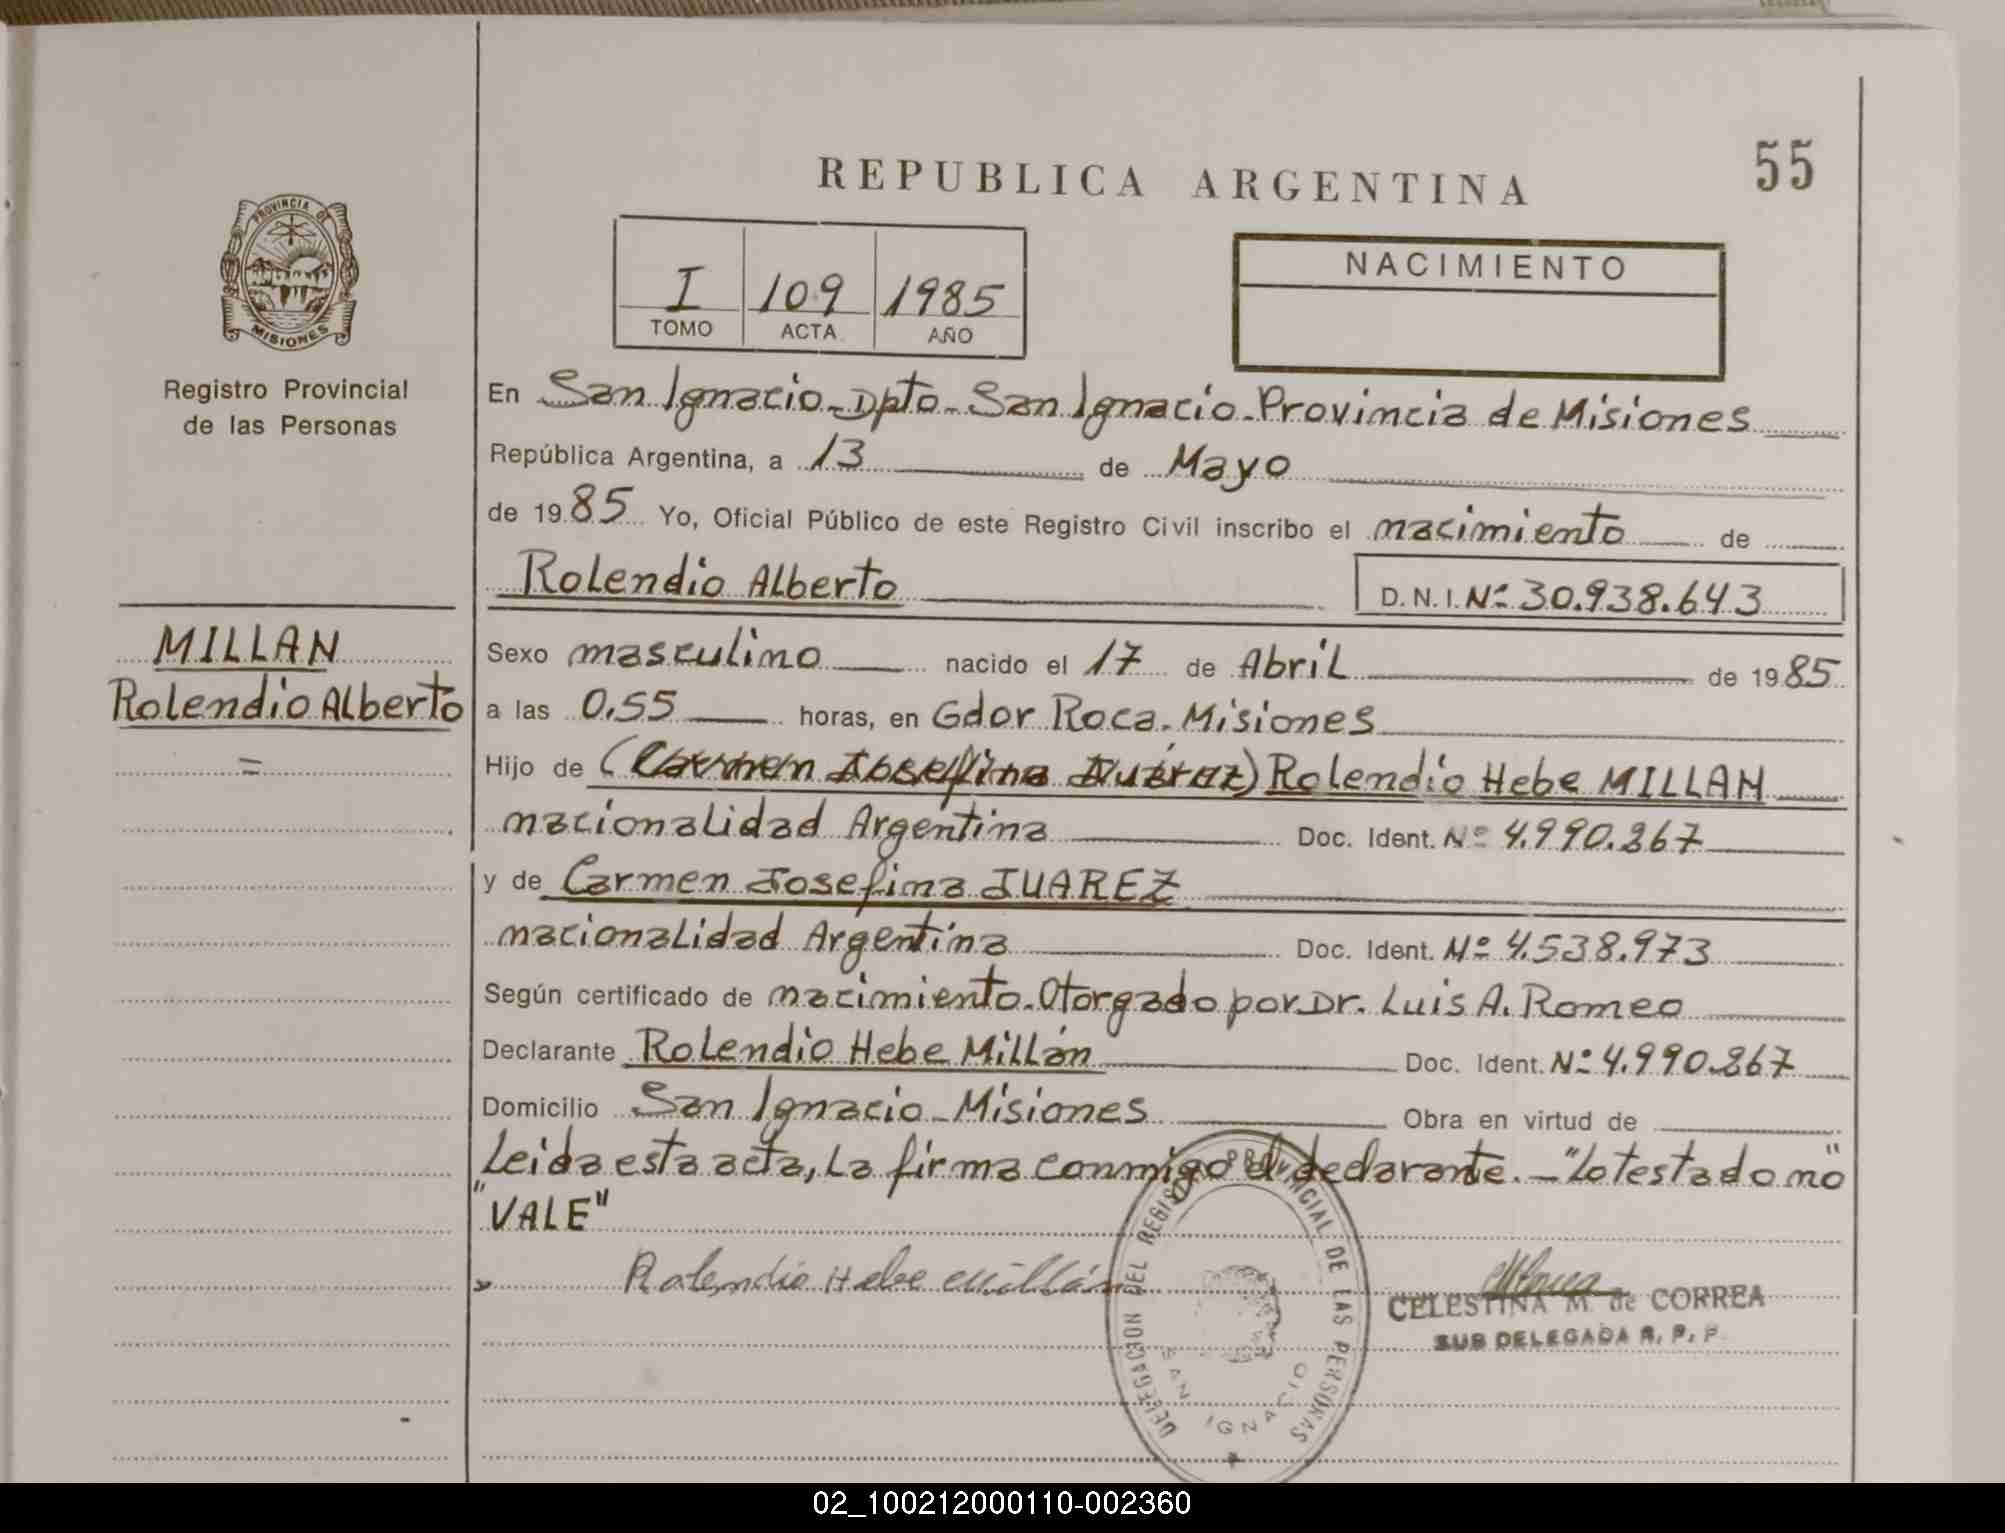 55
REPUBLICA ARGENTINA
PROVINCIA DE
MISIONES
Registro Provincial
de las Personas
I 109 1985
TOMO ACTA AÑO
NACIMIENTO
En San Ignacio - Dpto - San Ignacio - Provincia de Misiones
República Argentina, a 13 de Mayo
de 1985 Yo, Oficial Público de este Registro Civil inscribo el nacimiento de
Rolendio Alberto D.N.I. Nº 30.938.643
MILLAN
Rolendio Alberto
=
Sexo masculino nacido el 17 de Abril de 1985
a las 0,55 horas, en Gdor Roca. Misiones
Hijo de (Carmen Josefina Juárez) Rolendio Hebe MILLAN
nacionalidad Argentina Doc. Ident. Nº 4.990.267
y de Carmen Josefina JUAREZ
nacionalidad Argentina Doc. Ident. Nº 4.538.973
Según certificado de nacimiento. Otorgado por Dr. Luis A. Romeo
Declarante Rolendio Hebe Millán Doc. Ident. Nº 4.990.267
Domicilio San Ignacio - Misiones Obra en virtud de
Leida esta acta, La firma conmigo el declarante. - "Lo testado no"
"VALE"
Rolendio Hebe Millán
CELESTINA M. de CORREA
SUB DELEGADA R. P. P.
DELEGACION DEL REGISTRO PROVINCIAL DE LAS PERSONAS
SAN IGNACIO
02_100212000110-002360